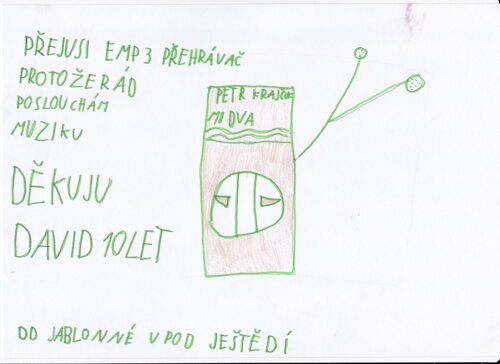 PŘEJUSI EMP3 PŘEHRÁVAČ
PROTOŽERÁD
POSLOUCHÁM
MUZIKU
DĚKUJU
DAVID 10LET
PETR KRAJČÍK
MI DVA
OD JABLONNÉ V POD JEŠTĚDÍ